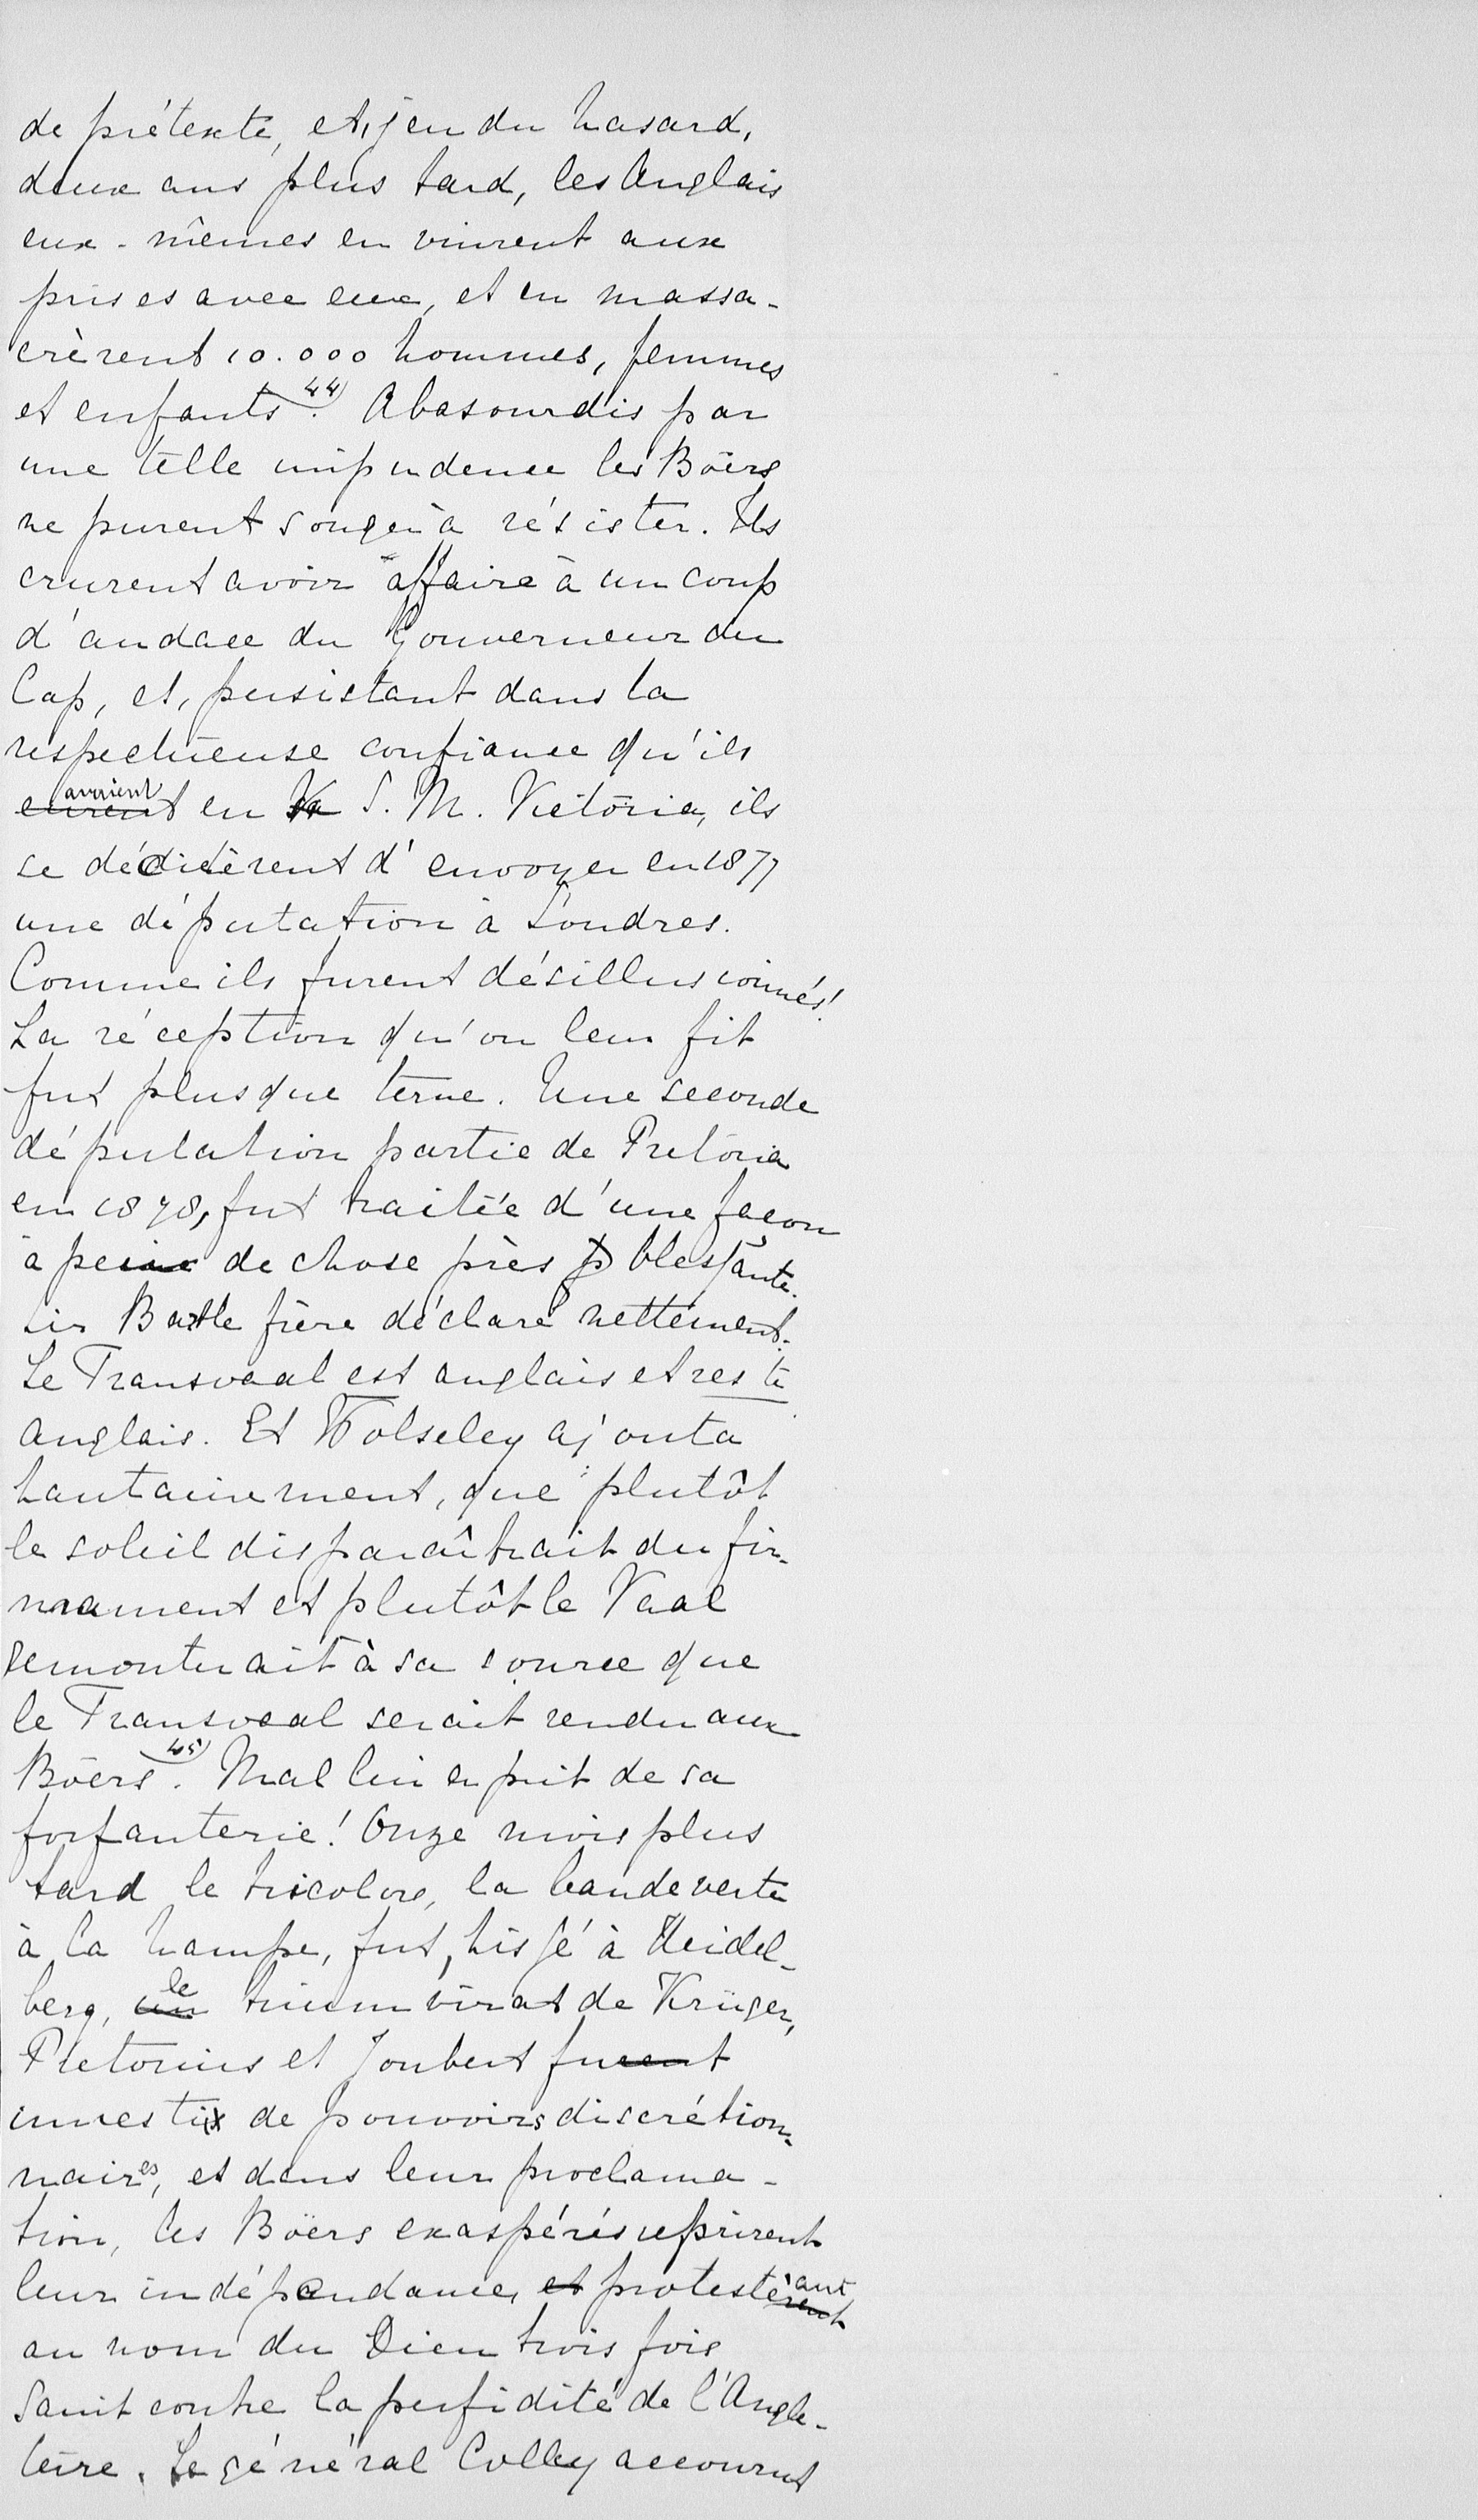 de prétexte, et, jeu du hasard,
deux ans plus tard, les Anglais
eux-mêmes en vinrent aux
prises avec eux, et en massa-
crèrent 10.000 hommes, femmes
et enfants 44). Abasourdis par
une telle impudence les Boërs
ne purent songer à résister. Ils
crurent avoir affaire à un coup
d'audace du Gouverneur du
Cap, et, persistant dans la
respectueuse confiance qu'ils
eurent avaient en S. M. Victoria, ils
se décidèrent d'envoyer en 1877
une députation à Londres.
Comme ils furent désillusionnés!
La réception qu'on leur fit
fut plus que terne. Une seconde
députation partie de Pretoria
en 1878, fut traitée d'une façon
à peine de chose près blessante.
Sir Bartle frère déclara nettement.
Le Transvaal est anglais et reste
anglais. Et Wolseley ajouta
hautainement, que plutôt
le soleil disparaîtrait du fir-
mament et plutôt le Vaal
remonterait à sa source que
le Transvaal serait rendu aux
Boërs 45). Mal lui en prit de sa
forfanterie! Onze mois plus
tard le tricolore, la bande verte
à la hampe, fut hissé à Heidel-
berg, un le triumvirat de Krüger,
Pretorius et Joubert furent
investix de pouvoirs discrétion-
naires, et dans leur proclama-
tion, les Boërs exaspérés reprirent
leur indépendance, et protestèrent ant
au nom du Dieu trois fois
Saint contre la perfidité de l'Angle-
terre. Le général Colley accourut